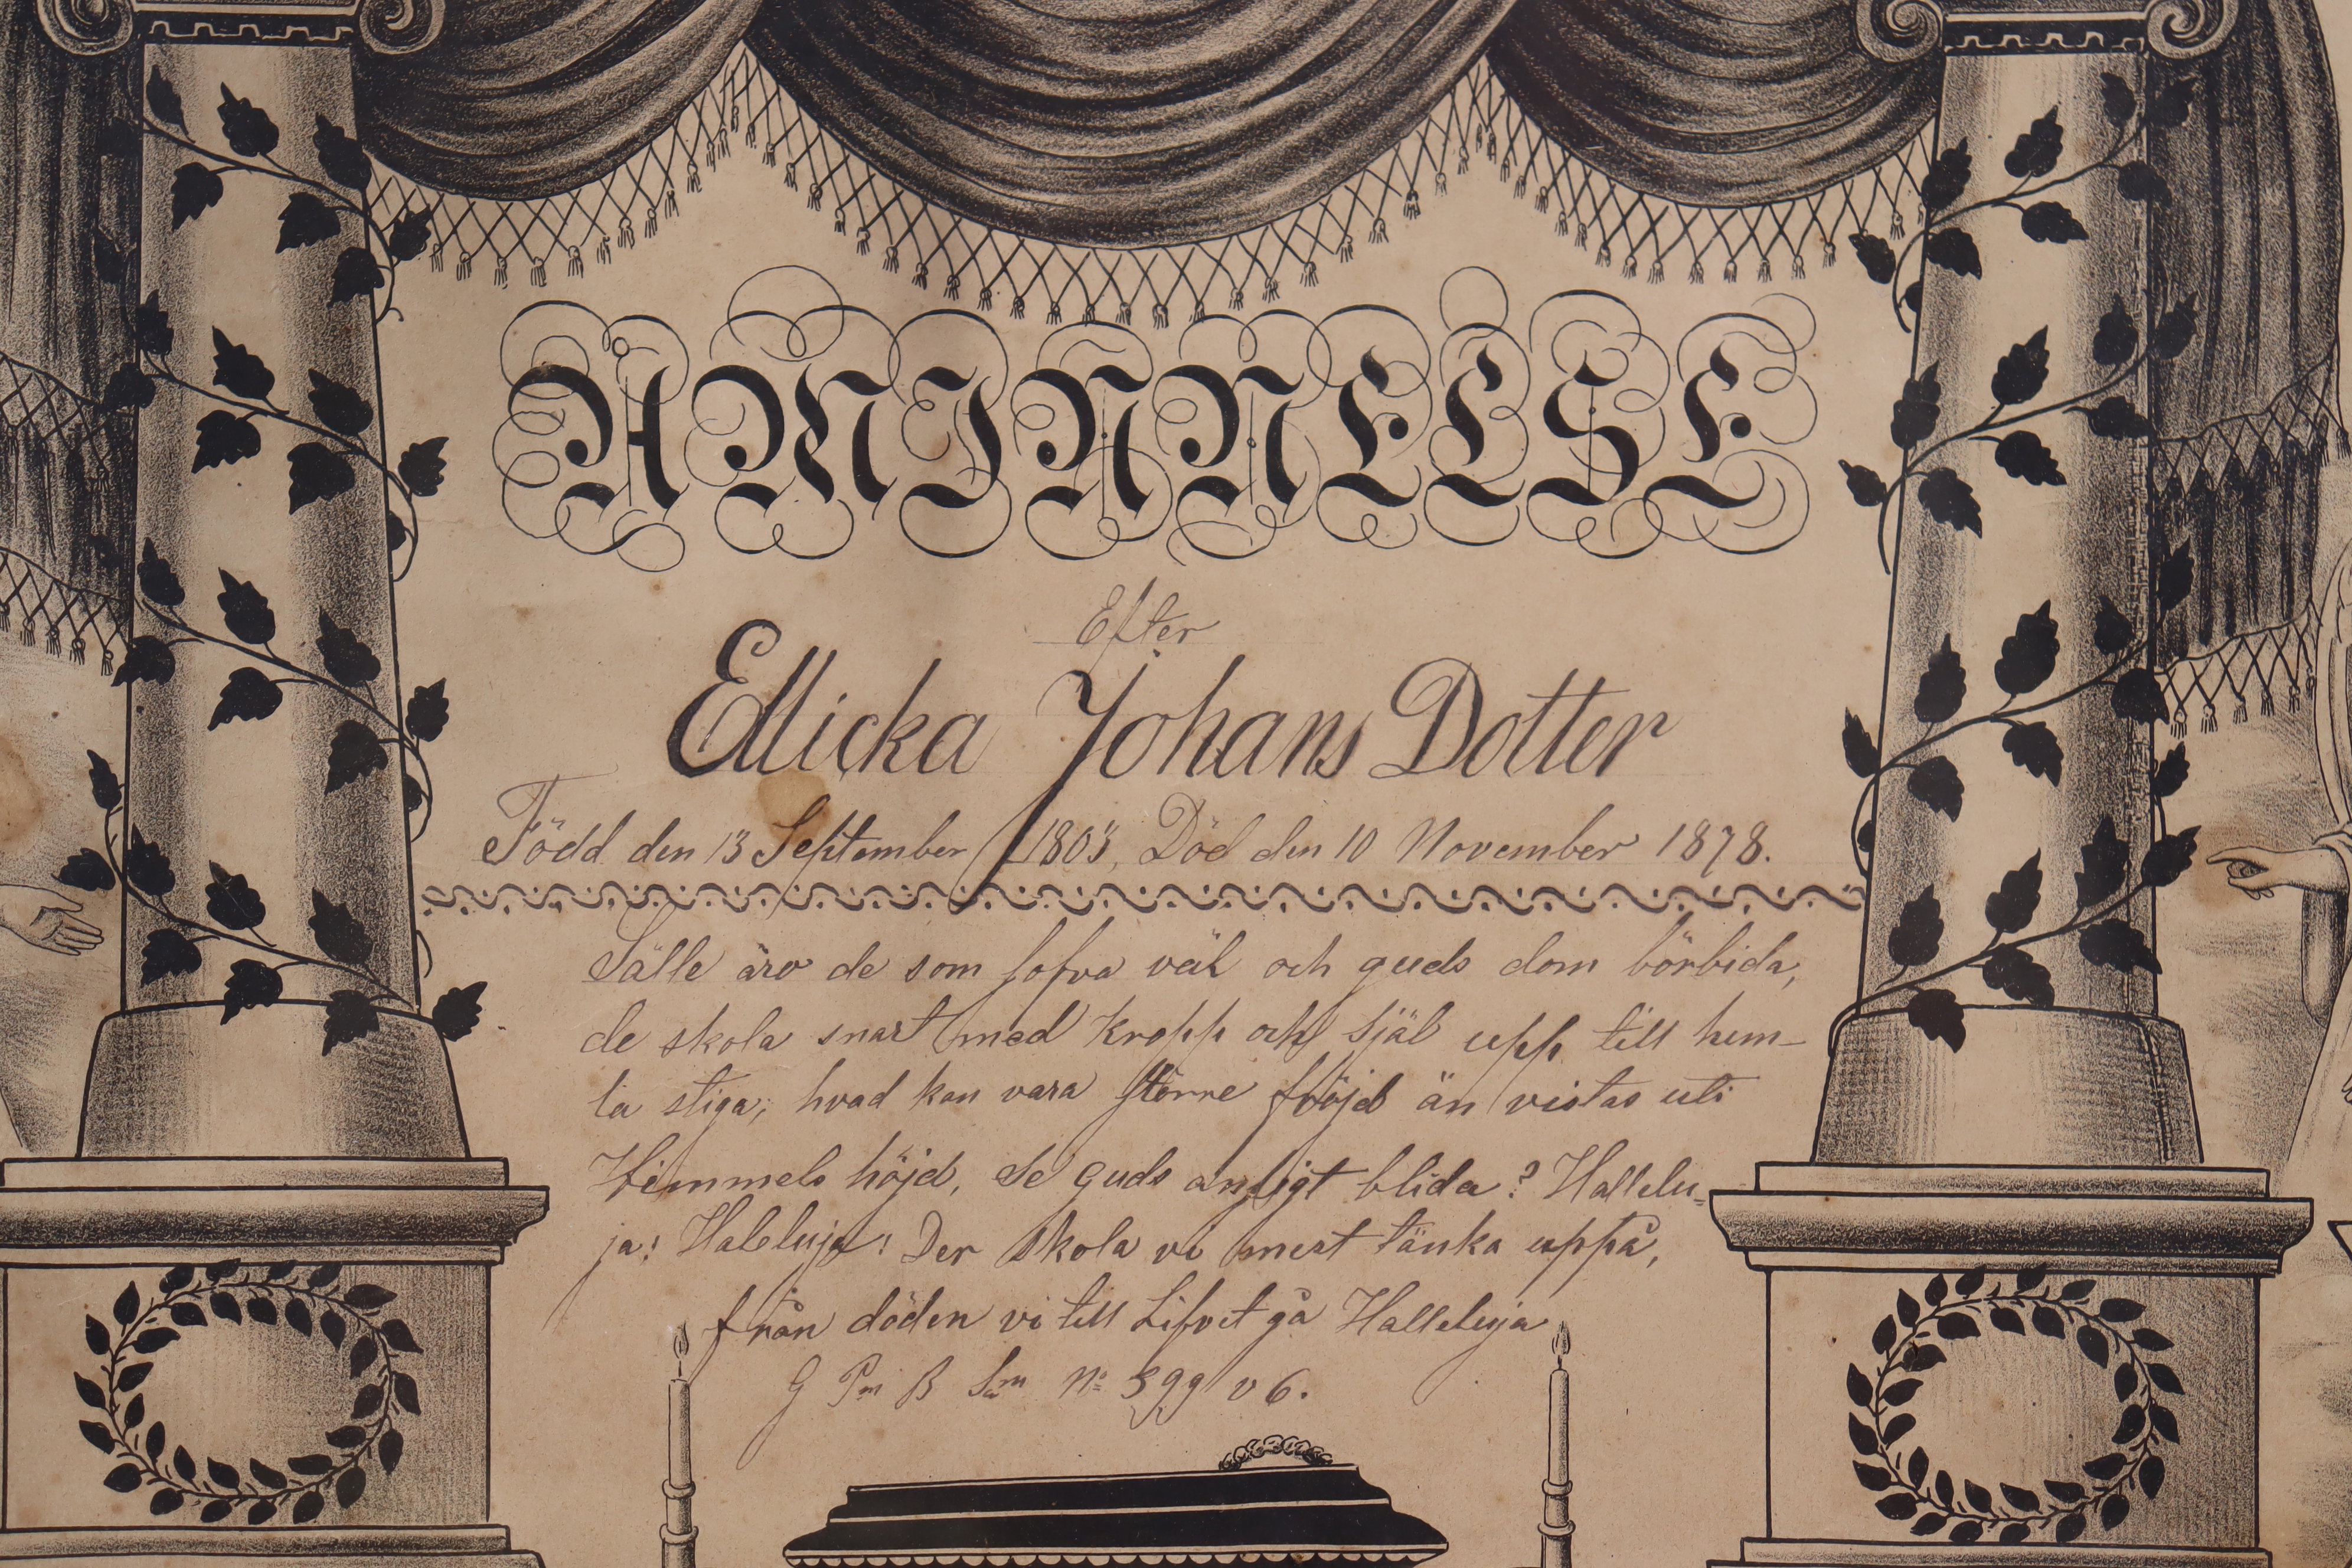 ÅMINNELSE
Efter
Ellicka Johans Dotter
Född den 13 September 1803, Död den 10 November 1878.
Sälle äro de som sofva väl och guds dom börbida,
de skola snart med kropp och själ upp till him-
la stiga, hvad kan vara större fröjd än vistas uti
Himmels höjd, Se guds ansigt blida? Hallelu-
ja! Haleluja! Der skola vi mest tänka uppå,
från döden vi till Lifvet gå Halleluja
G Pm B No 399 v 6.